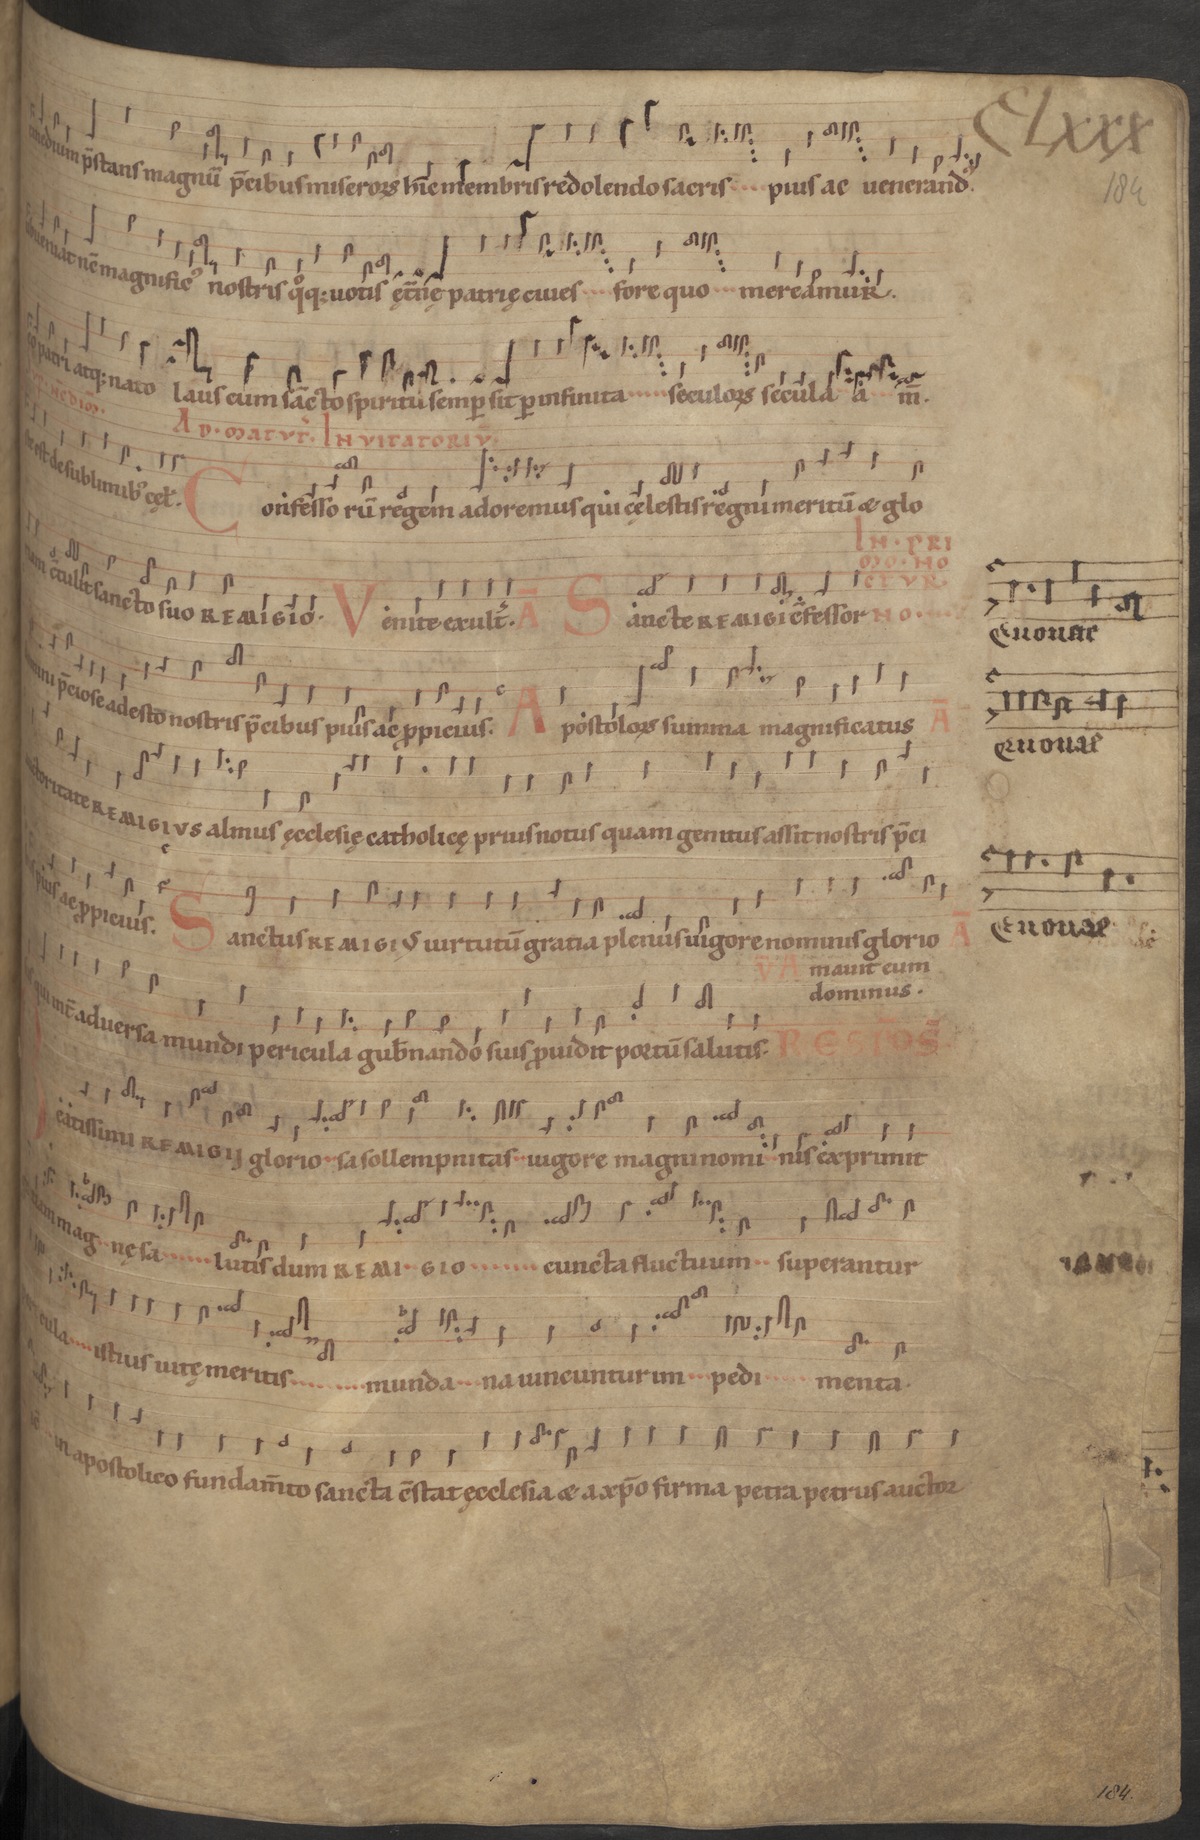 CLxxx
184
medium p̄stans magnū p̄cibus miseroꝝ hīc membris redolendo sacris pius ac venerand᷒.
nc̄ magnific᷒ nostris q̊q; uotis ęt̄nę patrię ciues fore quo mereamur.
patri atq; nato laus cum sāncto spiritu semꝑ sit ꝑ infinita seculoꝝ secula a m̄.
AD. MATVT̄. INVITATORIV̄.
est de sublimib᷒ cęl̄. Confessorū regem adoremus qui cęlestis regni meritū & glo
IN. PRI
MO. NO
CTVR
NO.
c̄tulit sancto suo REMIGIO. Venite exult̄. Ā Sancte REMIGI c̄fessor
Euouae
p̄ciose adesto nostris p̄cibus pius ac ꝓpicius. Apostoloꝝ summa magnificatus Ā
Euouae
auctoritate REMIGIVS almus ęcclesię catholicę prius notus quam genitus assit nostris p̄ci
pius ac ꝓpicius. Sanctus REMIGIVS uirtutū gratia plenus uigore nominis glorio Ā
Euouae
V̄ A mauit eum
dominus.
qui int̄ aduersa mundi pericula gub̄nando suis ꝓuidit portū salutis. RESPOS̄
eatissimi REMIGII glorio sa sollempnitas uigore magni nomi nis exprimit
mag nę sa lutis dum REMI GIO cuncta fluctuum superantur
cula istius uitę meritis munda na iuncuntur im pedi menta.
in apostolico fundam̄to sancta c̄stat ęcclesia & a xp̄o firma petra petrus auctor
184.